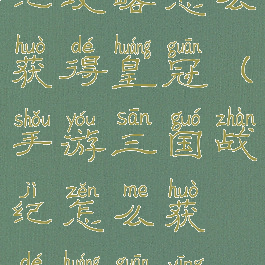 huò dé huáng guān
获得皇冠（
shǒu yóu sān guó zhàn
手游三国战
jì zěn me huò
纪怎么获
dé huáng guān